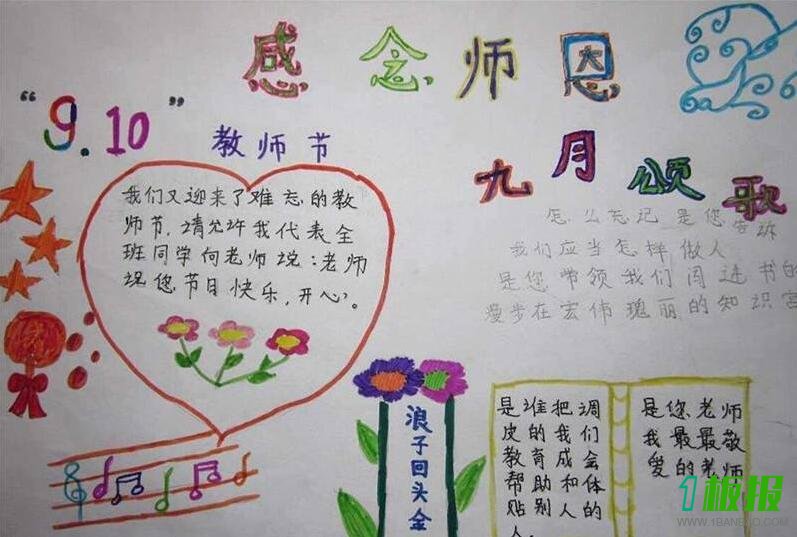 感念师恩
"9.10"
教师节
九月颂歌
我们又迎来了难忘的教
师节，请允许我代表全
班同学向老师说：老师
祝您节日快乐，开心。
怎么忘记是您告诉
我们应当怎样做人
是您带领我们闯进书的
漫步在宏伟瑰丽的知识宫
浪子回头金
是谁把调
皮的我们
教育成会
帮助和体
贴别人的
人。
是您老师
我最最敬
爱的老师
1板报
WWW.1BANBAO.COM